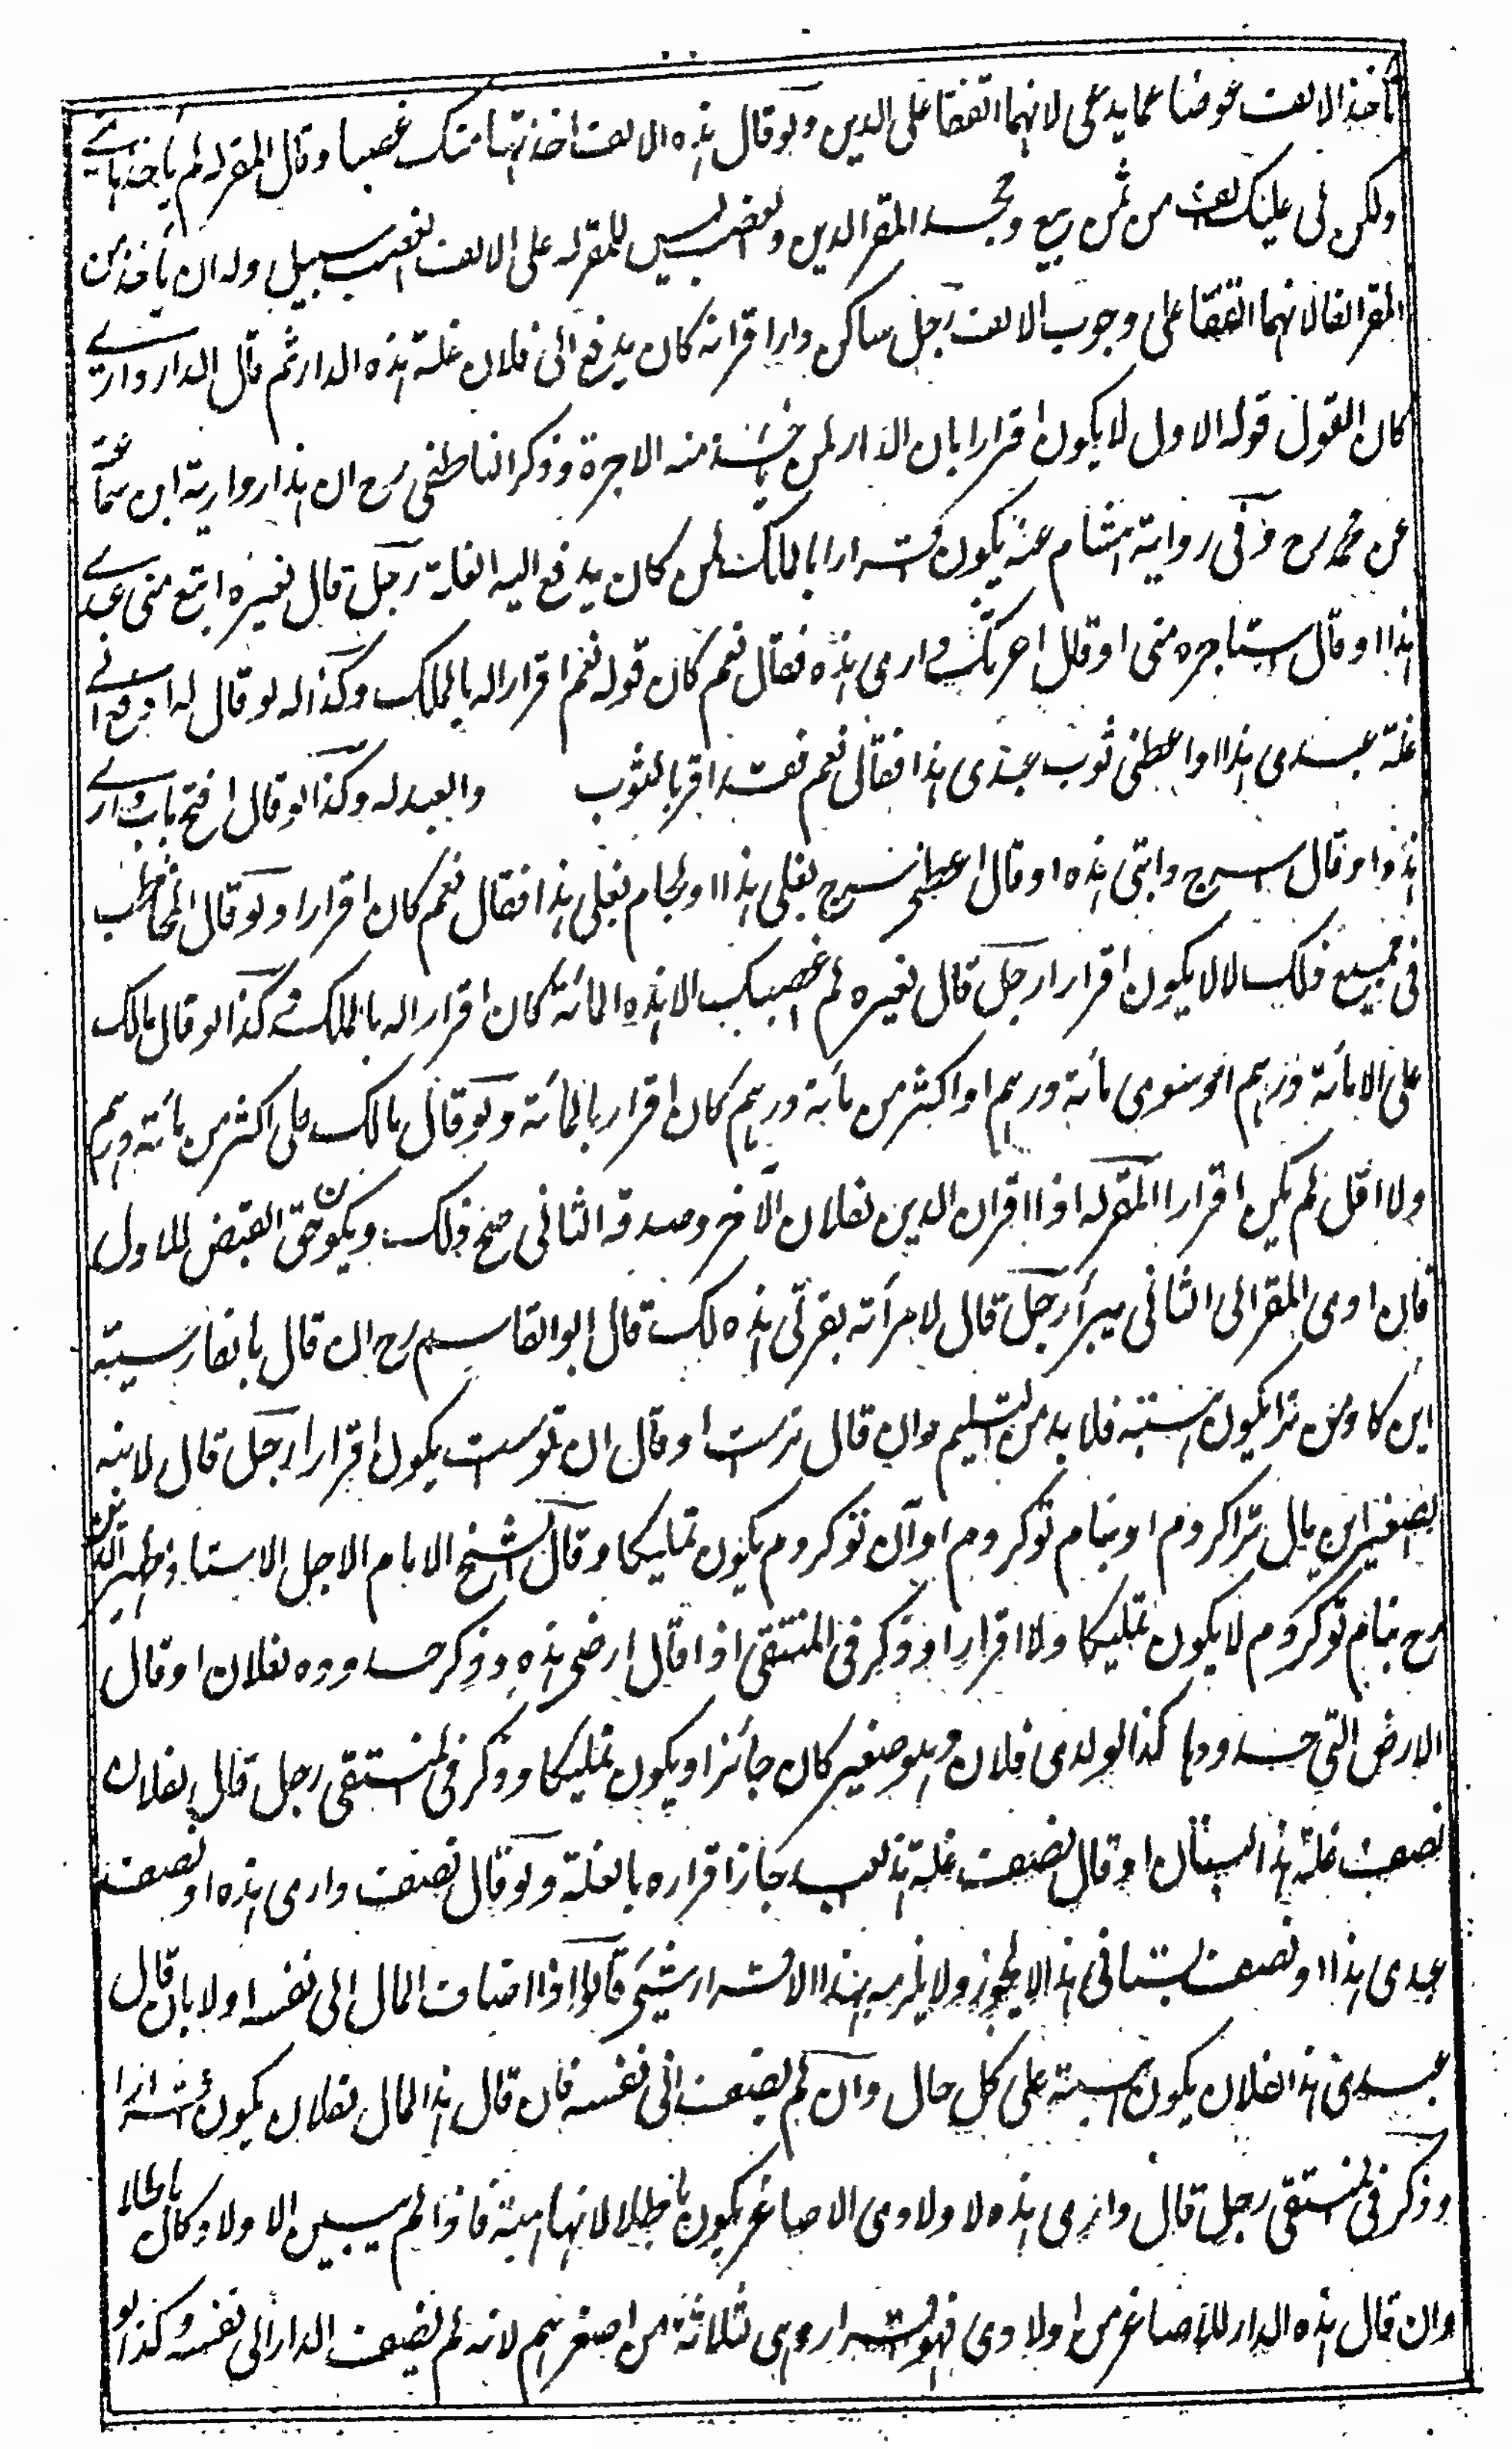 يأخذ الالف عوضا عما يدعى لانهما اتفقا على الدين ولو قال هذه الالف اخذتها منك غصبا وقال المقر له لم تأخذها منى
ولكن لى عليك الف من ثمن بيع وجحد المقر الدين والغصب ليس للمقر له على الالف الغصب سبيل وله ان يأخذ من
المقر الفا لانهما اتفقا على وجوب الالف رجل ساكن دار اقر انه كان يدفع الى فلان غلة هذه الدار ثم قال الدار دارى
كان القول قوله الاول لا يكون اقرارا بان الدار لمن يأخذ منه الاجرة وذكر الناطفى رح ان هذا رواية ابن سماعة
عن محمد رح وفى رواية هشام عنه يكون اقرارا بالملك لمن كان يدفع اليه الغلة رجل قال لغيره ابتع منى عبدى
هذا او قال استاجره منى او قال اجرتك دارى هذه فقال نعم كان قوله نعم اقرارا له بالملك وكذا له لو قال له ادفع الى
غلة عبدى هذا او اعطنى ثوب عبدى هذا فقال نعم فقد اقر بالثوب والعبد له وكذا لو قال افتح باب دارى
هذه او قال اسرج دابتى هذه او قال اعطنى سرج بغلى هذا او لجام بغلى هذا فقال نعم كان اقرارا ولو قال المخاطب
فى جميع ذلك لا لا يكون اقرارا رجل قال لغيره لم اغصبك الا هذه المائة كان اقرارا له بالملك وكذا لو قال مالك
على الا مائة درهم او سوى مائة درهم او اكثر من مائة درهم كان اقرار بالمائة ولو قال مالك على اكثر من مائة درهم
ولا اقل لم يكن اقرارا المقر له اذا اقر ان الدين لفلان الآخر وصدقه الثانى صح ذلك ويكون حق القبض للاول
فان ادى المقر الى الثانى يبرأ رجل قال لامرأته بقرتى هذه لك قال ابو القاسم رح ان قال بالفارسية
اين كاو من ترا يكون هبة فلا بد من التسليم وان قال تراست او قال ان توست يكون اقرارا رجل قال لابنه
الصغير اين مال ترا كردم او بنام تو كردم او آن تو كردم يكون تمليكا وقال الشيخ الامام الاجل الاستاذ ظهير الدين
رح بنام تو كردم لا يكون تمليكا ولا اقرارا وذكر فى المنتقى اذا قال ارضى هذه وذكر حدوده لفلان او قال
الارض التى حدودها كذا لولدى فلان وهو صغير كان جائزا ويكون تمليكا وذكر فى المنتقى رجل قال لفلان
نصف غلة هذا البستان او قال نصف غلة هذا العبد جاز اقراره بالغلة ولو قال نصف دارى هذه او نصف
عبدى هذا او نصف بستانى هذا لا يجوز ولا يلزمه بهذا الاقرار شئ قالوا اذا اضاف المال الى نفسه اولا بان قال
عبدى هذا لفلان يكون هبة على كل حال وان لم يضف الى نفسه فان قال هذا المال لفلان يكون اقرارا
وذكر فى المنتقى رجل قال دارى هذه لاولادى الاصاغر يكون باطلا لانها هبة فاذا لم يبين الاولاد كان باطلا
وان قال هذه الدار للاصاغر من اولادى فهو اقرار وهى لثلاثة من اصغرهم لانه لم يضف الدار الى نفسه وكذا لو